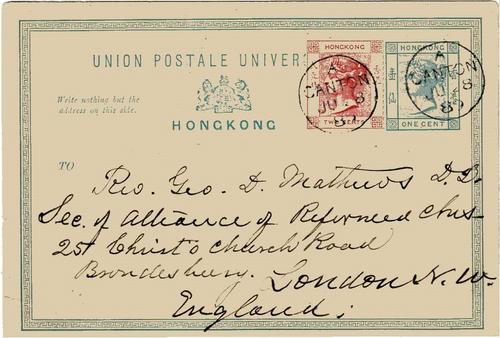 UNION POSTALE UNIVER
HONGKONG
HONGKONG
A
CANTON
8
TWO CENTS
A
CANTON
8
ONE CENT
Write nothing but the
address on this side.
HONGKONG
TO
Rev. Geo. D. Mathews D.D.
Sec. of Alliance of Reformed Chs
25 Christ Church Road
Brondesbury. London N.W.
England.